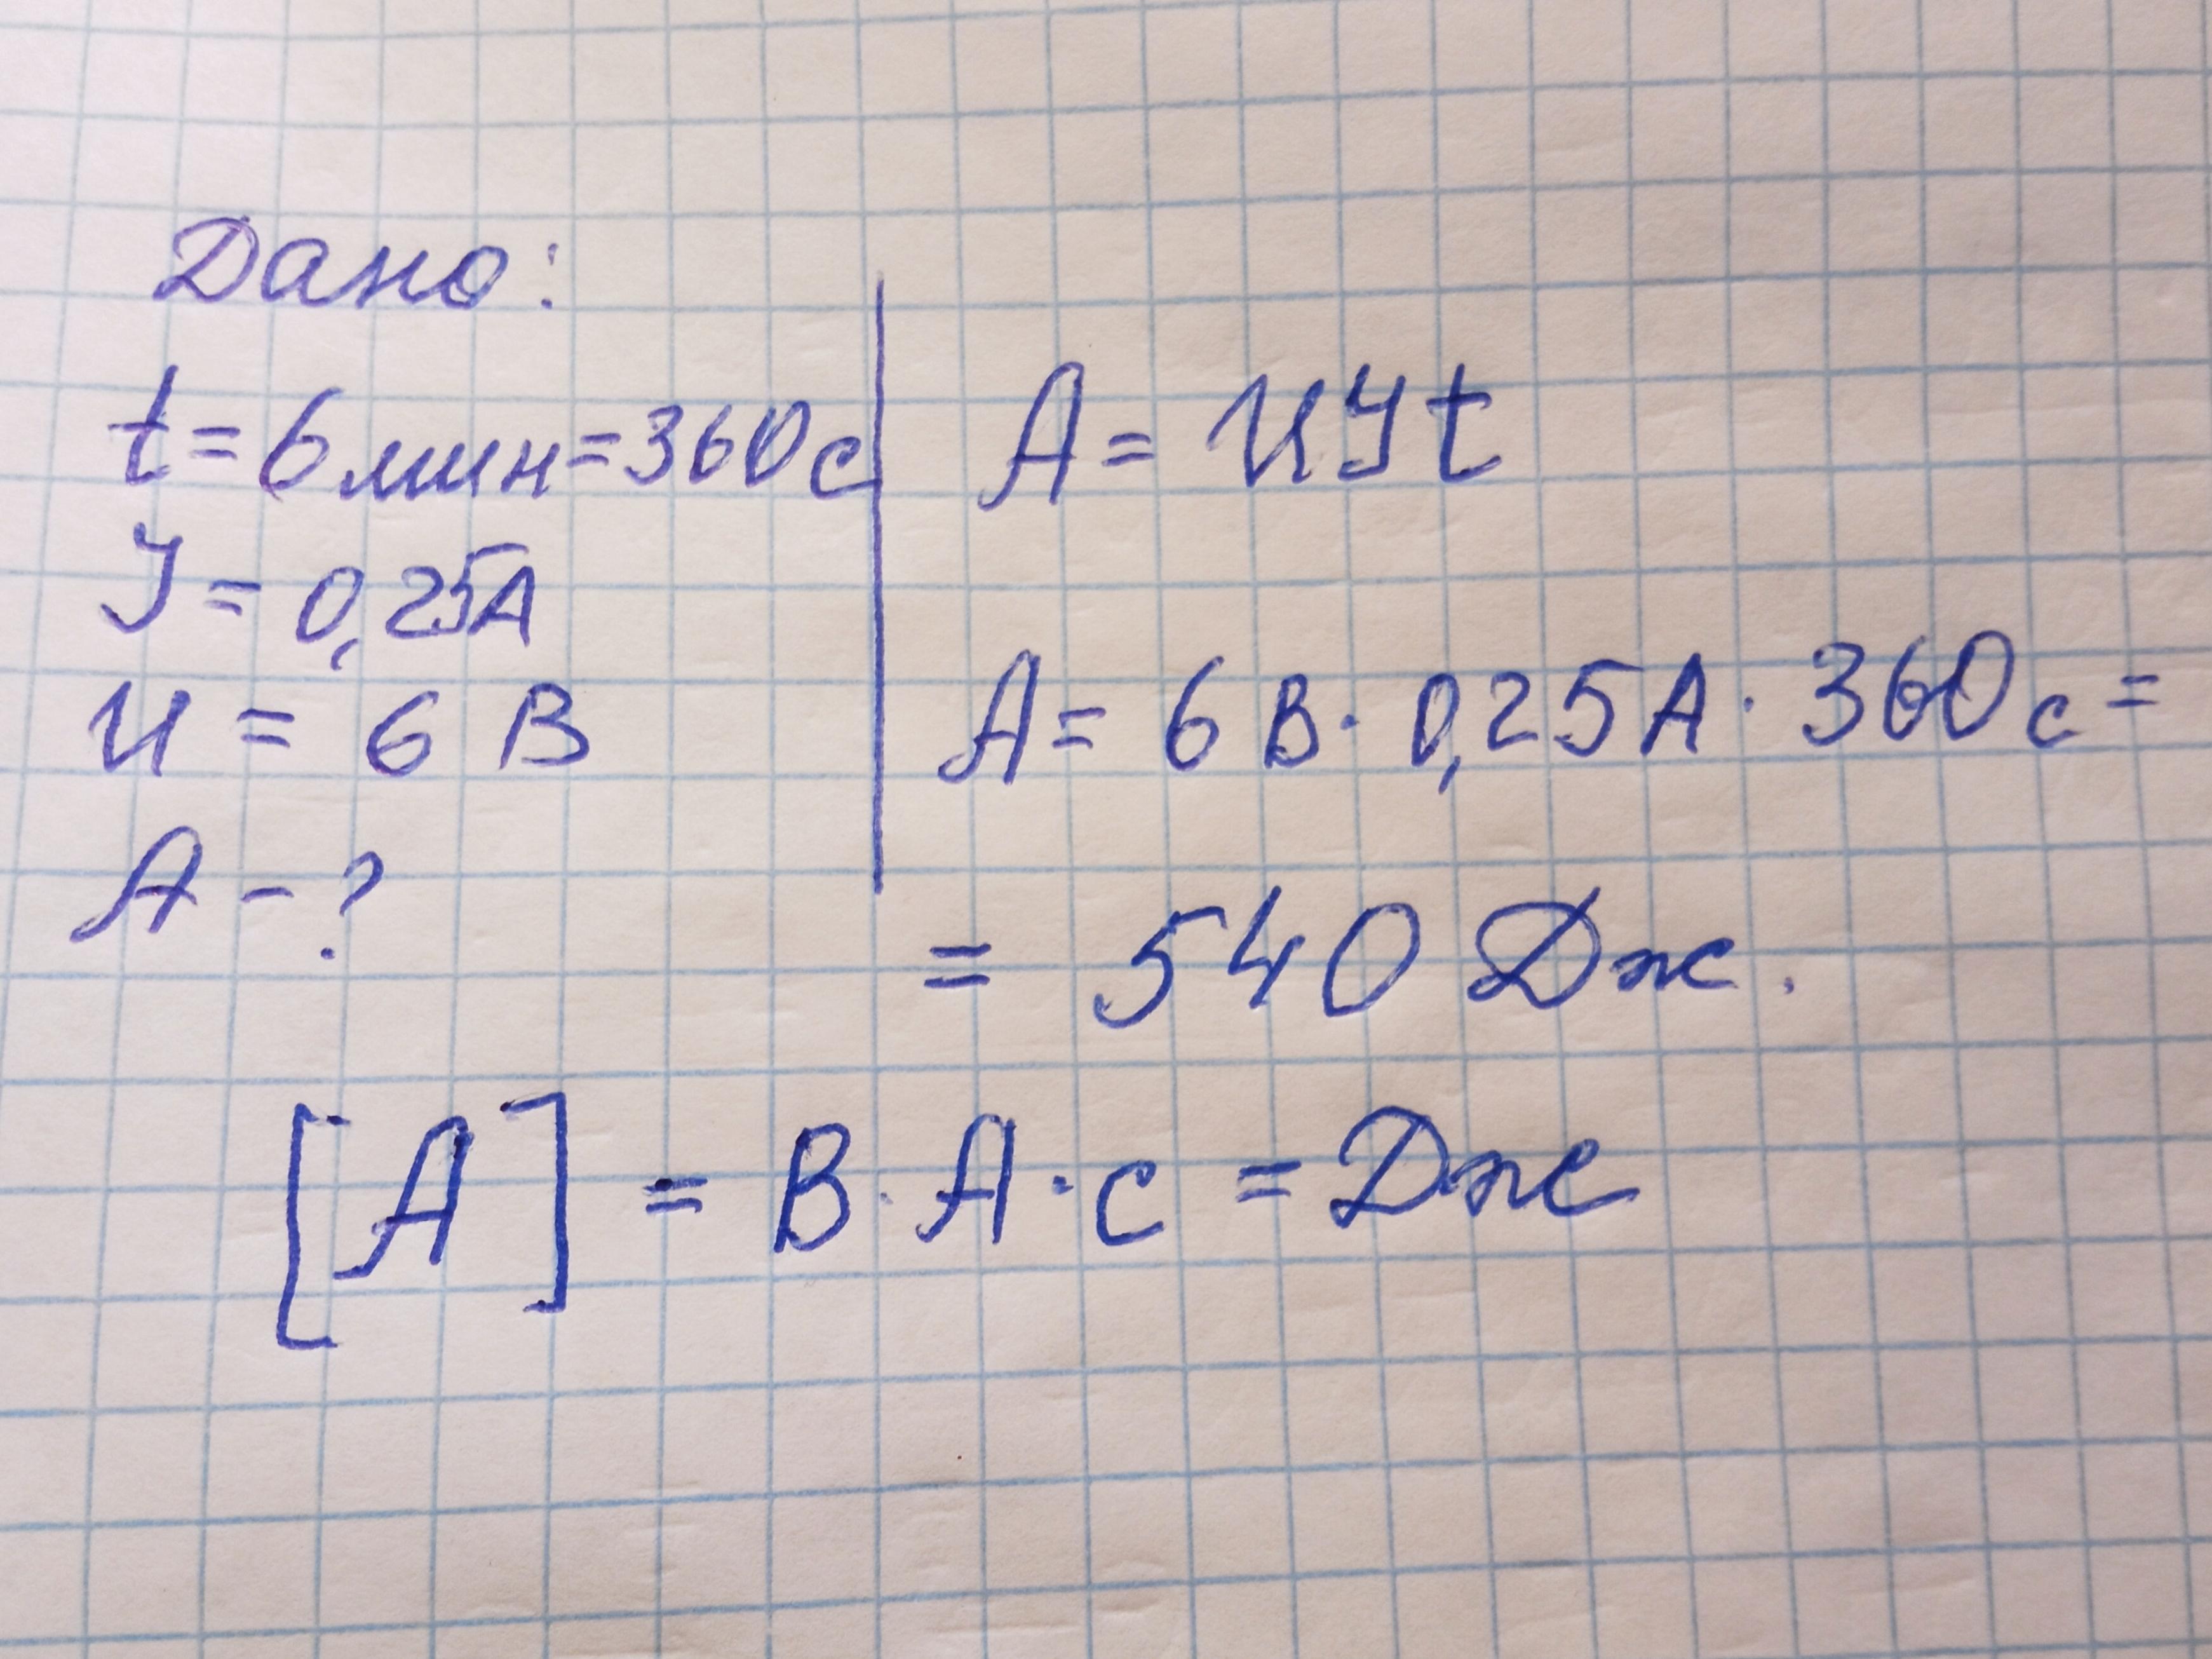 Дано:
t = 6 мин = 360 с
I = 0,25А
U = 6 В
А - ?
A = UIt
A = 6 В · 0,25 А · 360 с =
= 540 Дж.
[A] = В · А · с = Дж